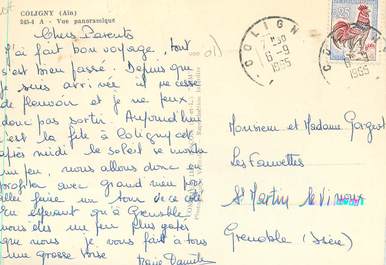 COLIGNY (Ain)
345-4 A - Vue panoramique
Chers Parents
J'ai fait bon voyage, tout
s'est bien passé. Depuis que
je suis arrivée il ne cesse
de pleuvoir et je ne peux
donc pas sortir. Aujourd'hui
c'est la fête à Coligny et
après midi le soleil se montre
un peu, nous allons donc en
profiter avec grand
aller faire un tour de ce côté
En espérant qu'à Grenoble
vous êtes un peu plus gâtés
que nous je vous fait à tous
une grosse bise
Danièle
COLIGNY
6-9
1965
0,25
Monsieur et Madame
"Les Fauvettes"
St Martin le Vinoux
Grenoble (Isère)